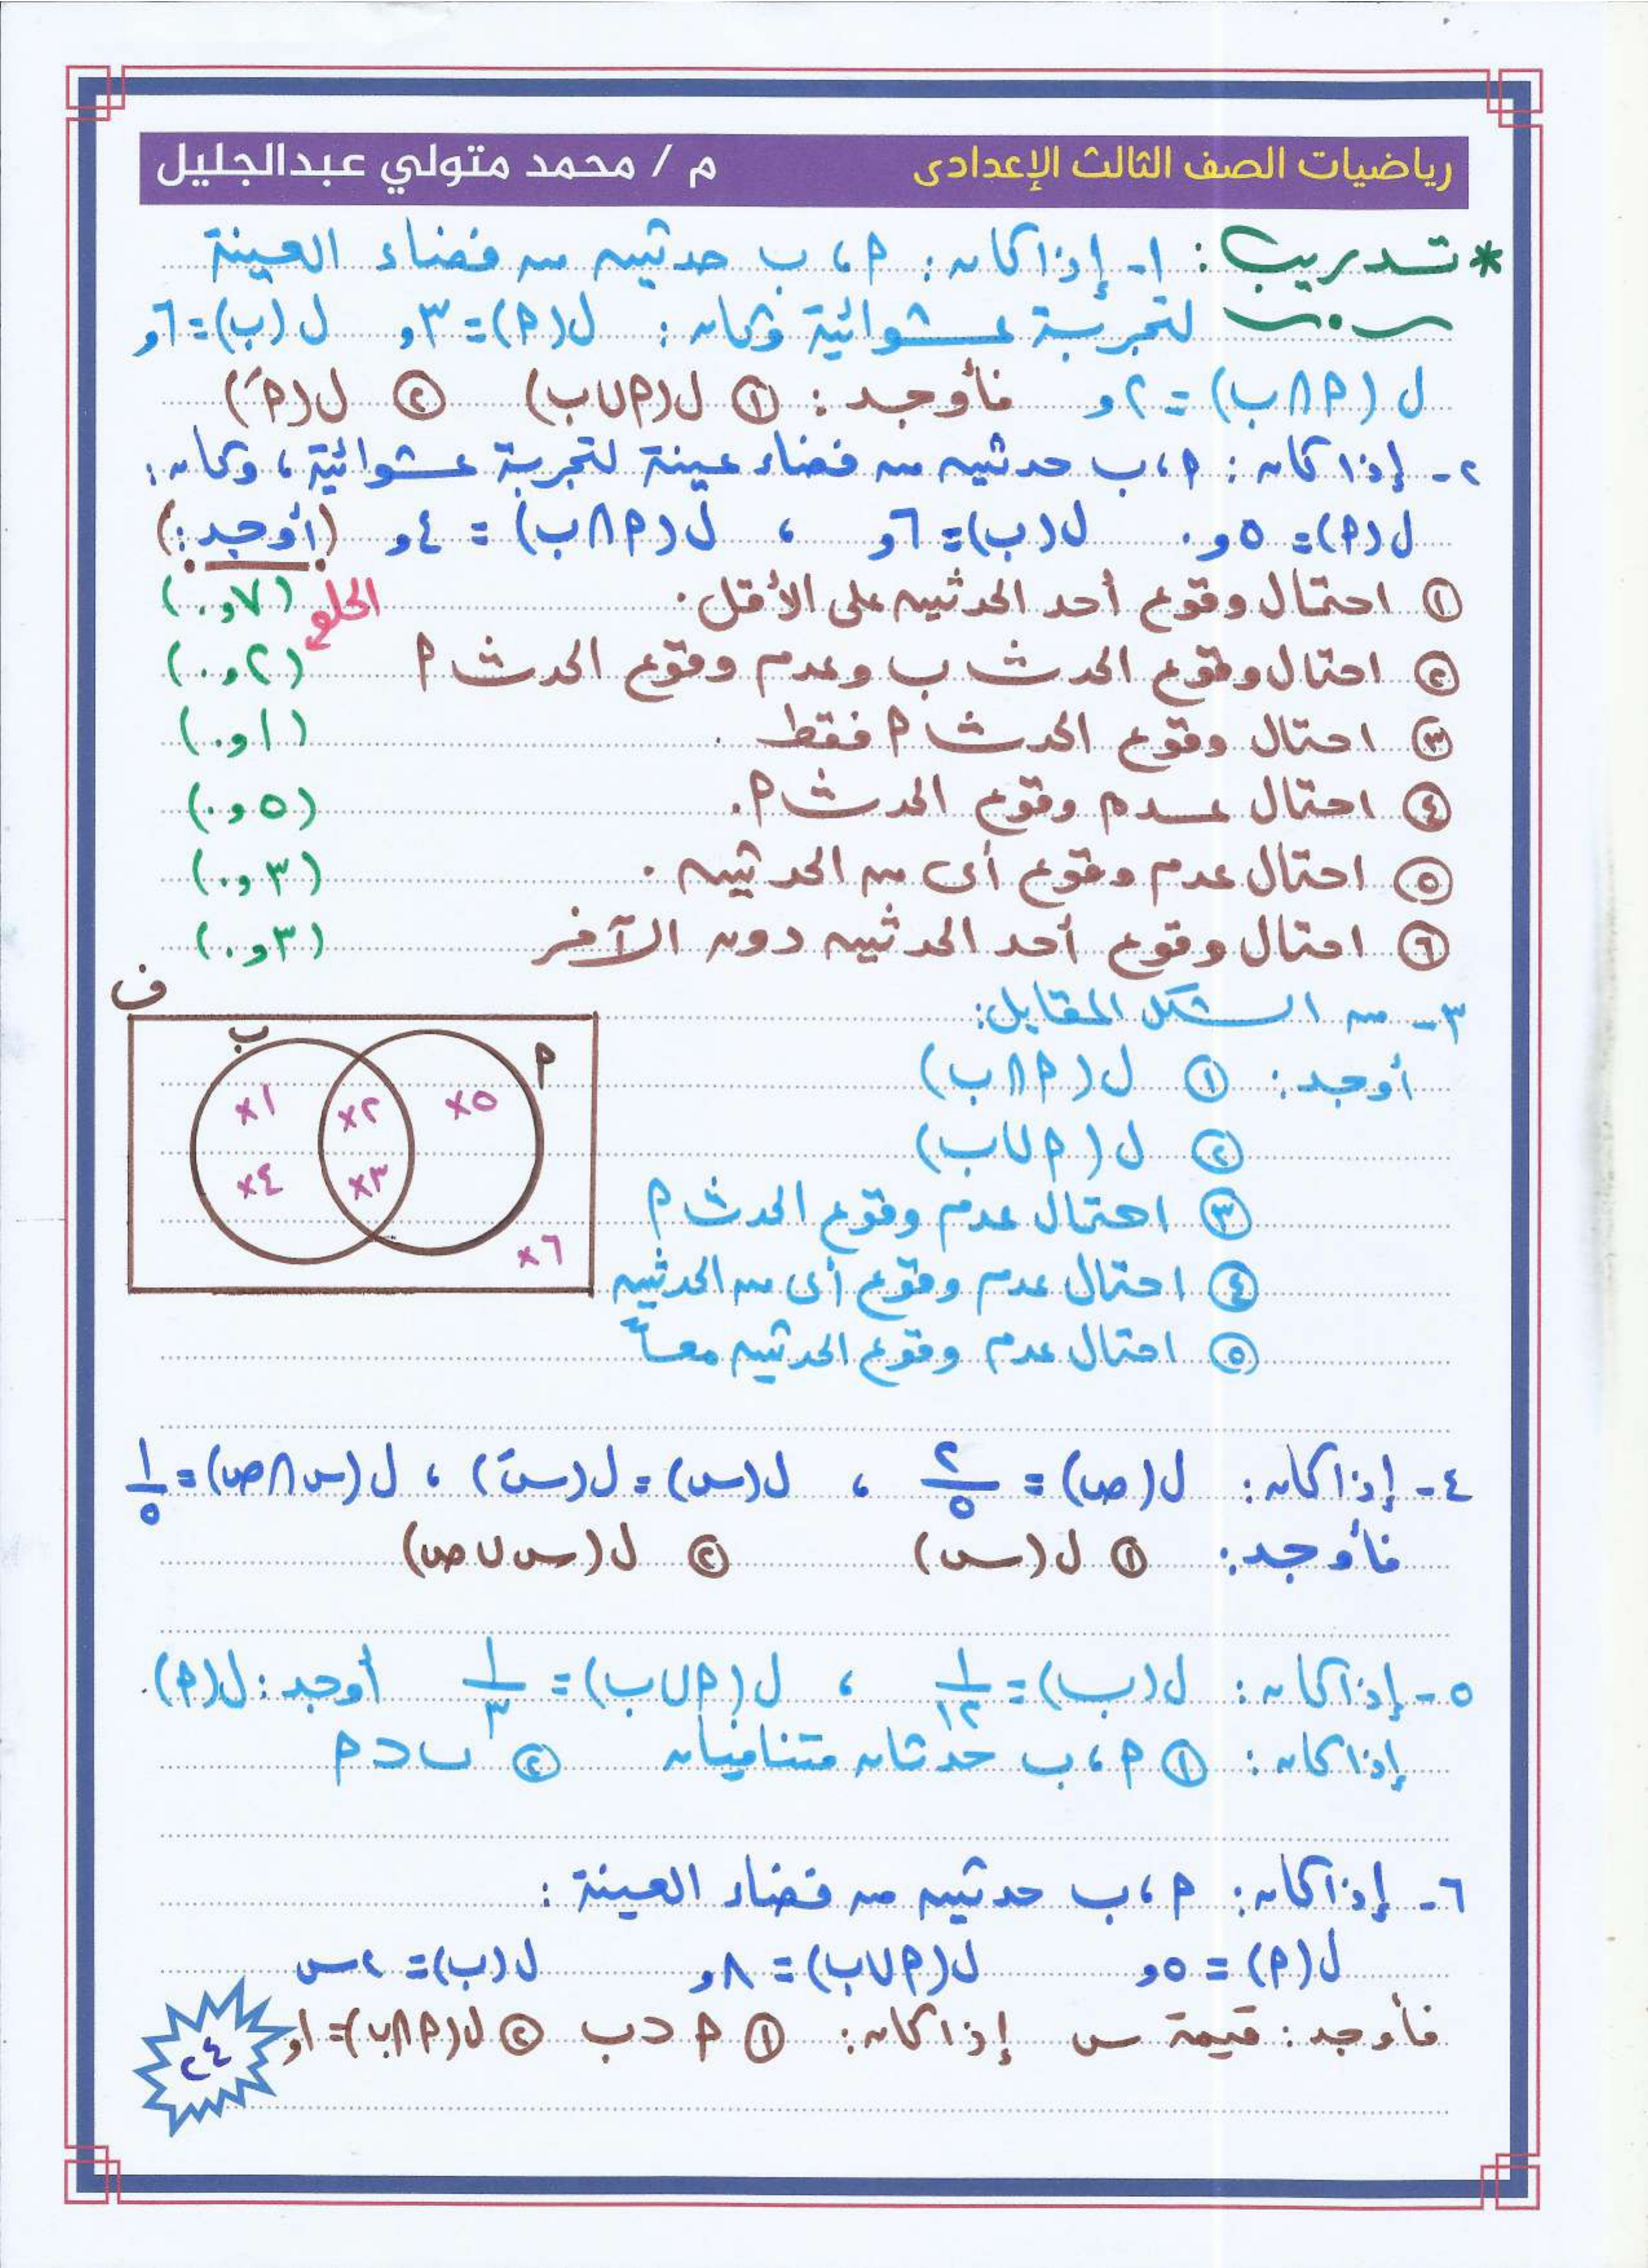 رياضيات الصف الثالث الإعدادى م / محمد متولي عبدالجليل
* تدريب : ١- إذا كان : ٩ ، ب حدثين من فضاء العينة
لتجربة عشوائية وكان : ل(٩) = ٣و ل(ب) = ٦و
ل(٩∩ب) = ٢و فأوجد : ① ل(٩∪ب) ② ل(٩َ)
٢- إذا كان : ٩ ، ب حدثين من فضاء عينة لتجربة عشوائية ، وكان :
ل(٩) = ٥و. ل(ب) = ٦و ، ل(٩∩ب) = ٤و (أوجد :)
① احتمال وقوع أحد الحدثين على الأقل . الحلو (٧و.)
② احتمال وقوع الحدث ب وعدم وقوع الحدث ٩ (٢و.)
③ احتمال وقوع الحدث ٩ فقط . (١و.)
④ احتمال عدم وقوع الحدث ٩ . (٥و.)
⑤ احتمال عدم وقوع أى من الحدثين . (٣و.)
⑥ احتمال وقوع أحد الحدثين دون الآخر (٣و.)
٣- من الشكل المقابل :
أوجد : ① ل(٩∩ب)
② ل(٩∪ب)
③ احتمال عدم وقوع الحدث ٩
④ احتمال عدم وقوع أى من الحدثين
⑤ احتمال عدم وقوع الحدثين معاً
ف
ب ٩
×١ ×٢ ×٥
×٤ ×٣
×٦
٤- إذا كان : ل(ص) = ٢/٥ ، ل(س) = ل(سَ) ، ل(س∩ص) = ١/٥
فأوجد : ① ل(س) ② ل(س∪ص)
٥- إذا كان : ل(ب) = ١/١٢ ، ل(٩∪ب) = ١/٣ أوجد : ل(٩) .
إذا كان : ① ٩ ، ب حدثان متنافيان ② ب⊂٩
٦- إذا كان : ٩ ، ب حدثين من فضاء العينة :
ل(٩) = ٥و ل(٩∪ب) = ٨و ل(ب) = ٢س
فأوجد : قيمة س إذا كان : ① ٩⊂ب ② ل(٩∩ب) = ١و
٢٤